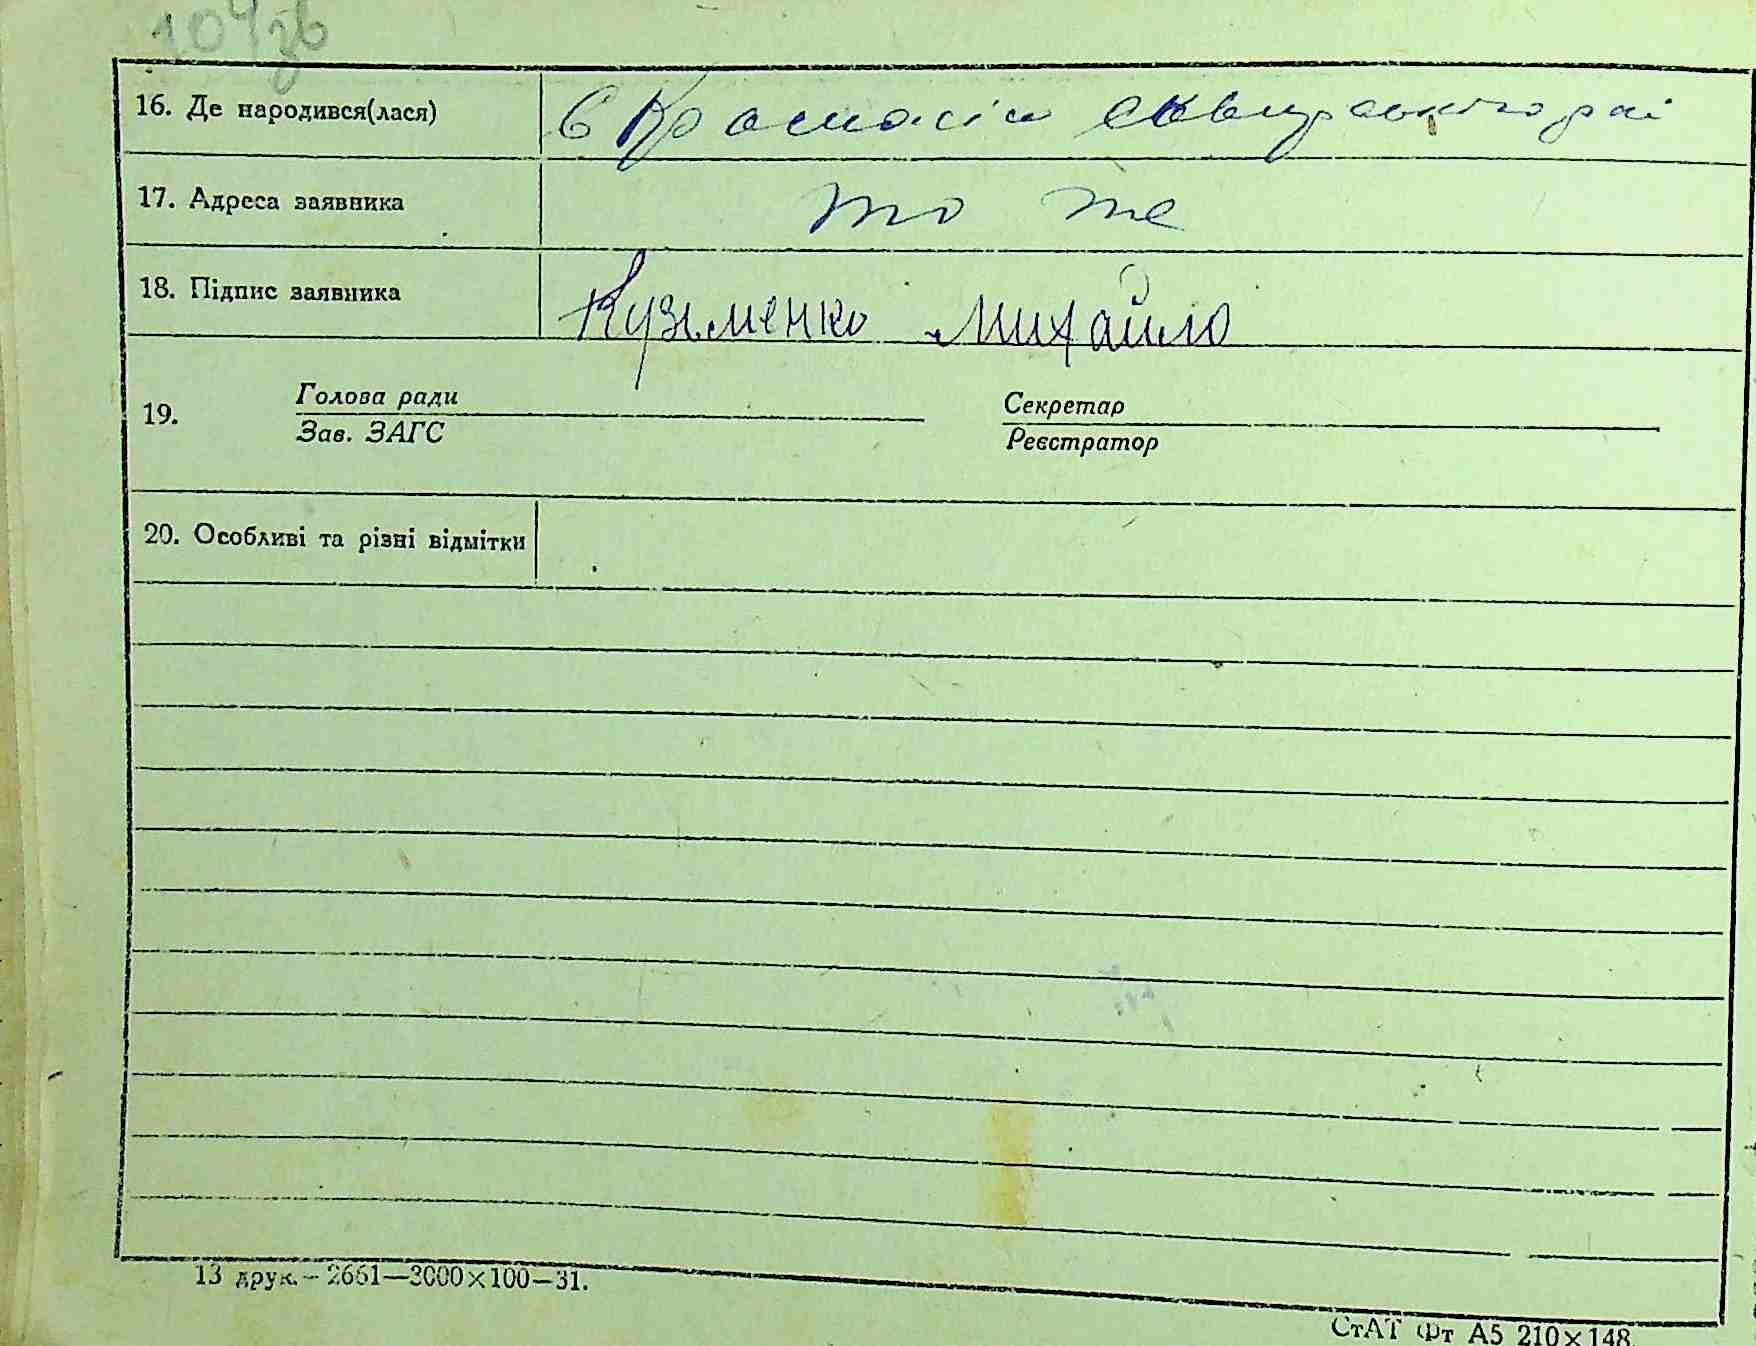 104зв
16. Де народився(лася) в Красносілк сквирського рай
17. Адреса заявника то же
18. Підпис заявника Кузьменко Михайло
19. Голова ради Секретар
Зав. ЗАГС Реєстратор
20. Особливі та різні відмітки
13 друк.-2661—3000×100-31.
СтАТ Фт А5 210×148.